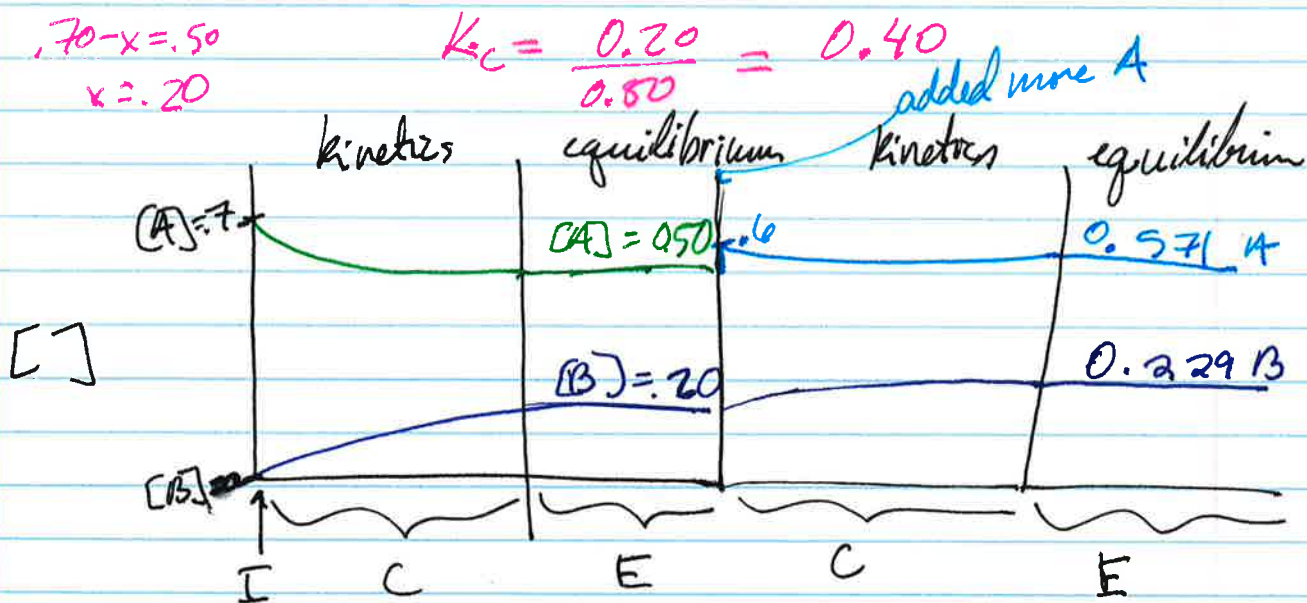 .70-x=.50
x=.20
Kc = 0.20 / 0.50 = 0.40
added more A
kinetics equilibrium kinetics equilibrium
[A]=.7
[A] = 0.50
.6
0.571 A
[ ]
[B]=.20
0.229 B
[B]=
I C E C E